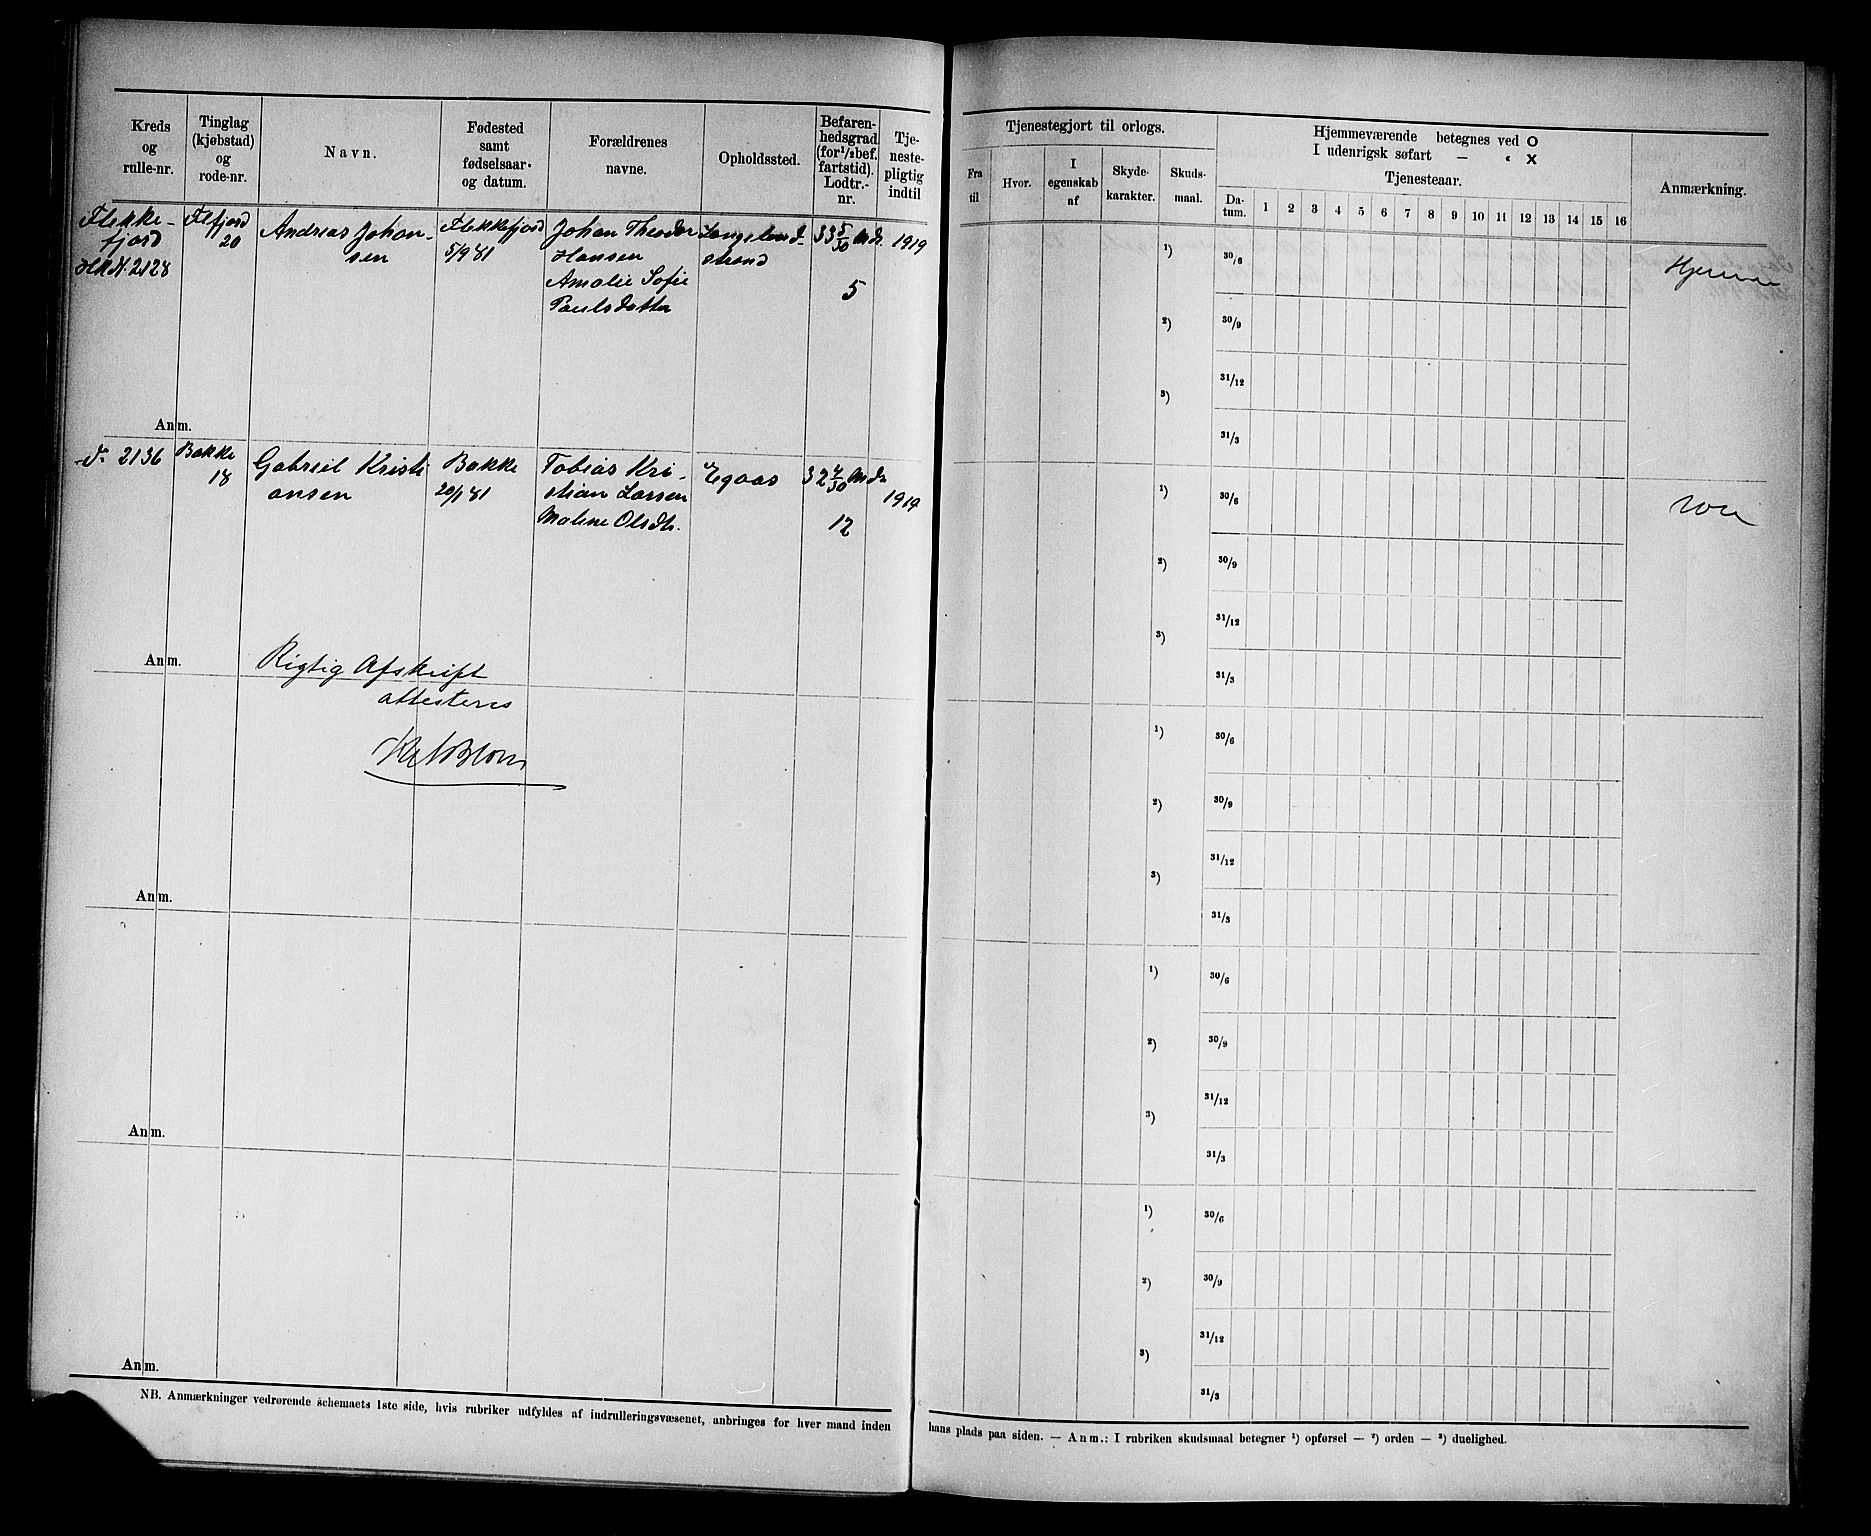 Kreds
og
rulle-nr.
Tinglag
(kjøbstad)
og
rode-nr.
Navn.
Fødested
samt
fødselsaar-
og datum.
Forældrenes
navne.
Opholdssted.
Befaren-
hedsgrad
(for 1/2 bef.
fartstid).
Lodtr.-
nr.
Tje-
neste-
pligtig
indtil
Flekke-
fjord
2128
Flfjord
20
Andreas Johan-
sen
Flekkefjord
5/9 81
Johan Theodor
Hansen
Amalie Sofie
Paulsdatter
strand
33 5/30 Mdr.
5
1919
Anm.
2136
Bakke
18
Gabriel Kristi
ansen
Bakke
20/1 81
Tobias Kri-
stian Larsen
Malene Olsdtr.
Egaas
32 4/30 Mdr
12
1919
Anm.
Rigtig Afskrift
attesteres
Anm.
Anm.
Anm.
NB. Anmærkninger vedrørende schemaets 1ste side, hvis rubriker udfyldes af indrulleringsvæsenet, anbringes for hver mand inden
Tjenestegjort til orlogs.
Fra
til
Hvor.
I
egenskab
af
Skyde-
karakter.
Skuds-
maal.
Hjemmeværende betegnes ved O
I udenrigsk søfart — « X
Tjenesteaar.
Da-
tum.
1 2 3 4 5 6 7 8 9 10 11 12 13 14 15 16
Anmærkning.
1) 30/6
Hjemme
2) 30/9
31/12
3)
31/3
1) 30/6
2) 30/9
31/12
3)
31/3
1) 30/6
2) 30/9
31/12
3)
31/3
1) 30/6
2) 30/9
31/12
3)
31/3
1) 30/6
2) 30/9
31/12
3)
31/3
hans plads paa siden. — Anm.: I rubriken skudsmaal betegner 1) opførsel — 2) orden — 3) duelighed.